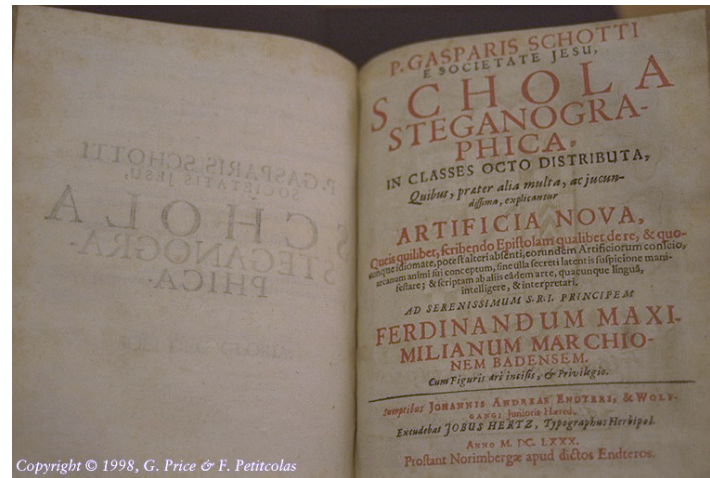 P. GASPARIS SCHOTTI
E SOCIETATE JESU,
SCHOLA
STEGANOGRA-
PHICA.
IN CLASSES OCTO DISTRIBUTA,
Quibus, præter alia multa, ac jucun-
dissima, explicantur
ARTIFICIA NOVA,
Queis quilibet, scribendo Epistolam qualibet de re, & quo-
cunque idiomate, potest alteri absenti, eorundem Artificiorum conscio,
arcanum animi sui conceptum, sine ulla secreti latentis suspicione mani-
festare; & scriptam ab aliis eâdem arte, quacunque linguâ,
intelligere, & interpretari.
AD SERENISSIMUM S.R.I. PRINCIPEM
FERDINANDUM MAXI-
MILIANUM MARCHIO-
NEM BADENSEM.
Cum Figuris æri incisis, & Privilegio.
Sumptibus JOHANNIS ANDREÆ ENDTERI, & WOLF-
GANGI Junioris Hæred.
Excudebat JOBUS HERTZ, Typographus Herbipol.
ANNO M. DC. LXXX.
Prostant Norimbergæ apud dictos Endteros.
P. GASPARIS SCHOTTI
SOCIETATIS JESU,
SCHOLA
STEGANOGRA-
PHICA.
Copyright © 1998, G. Price & F. Petitcolas